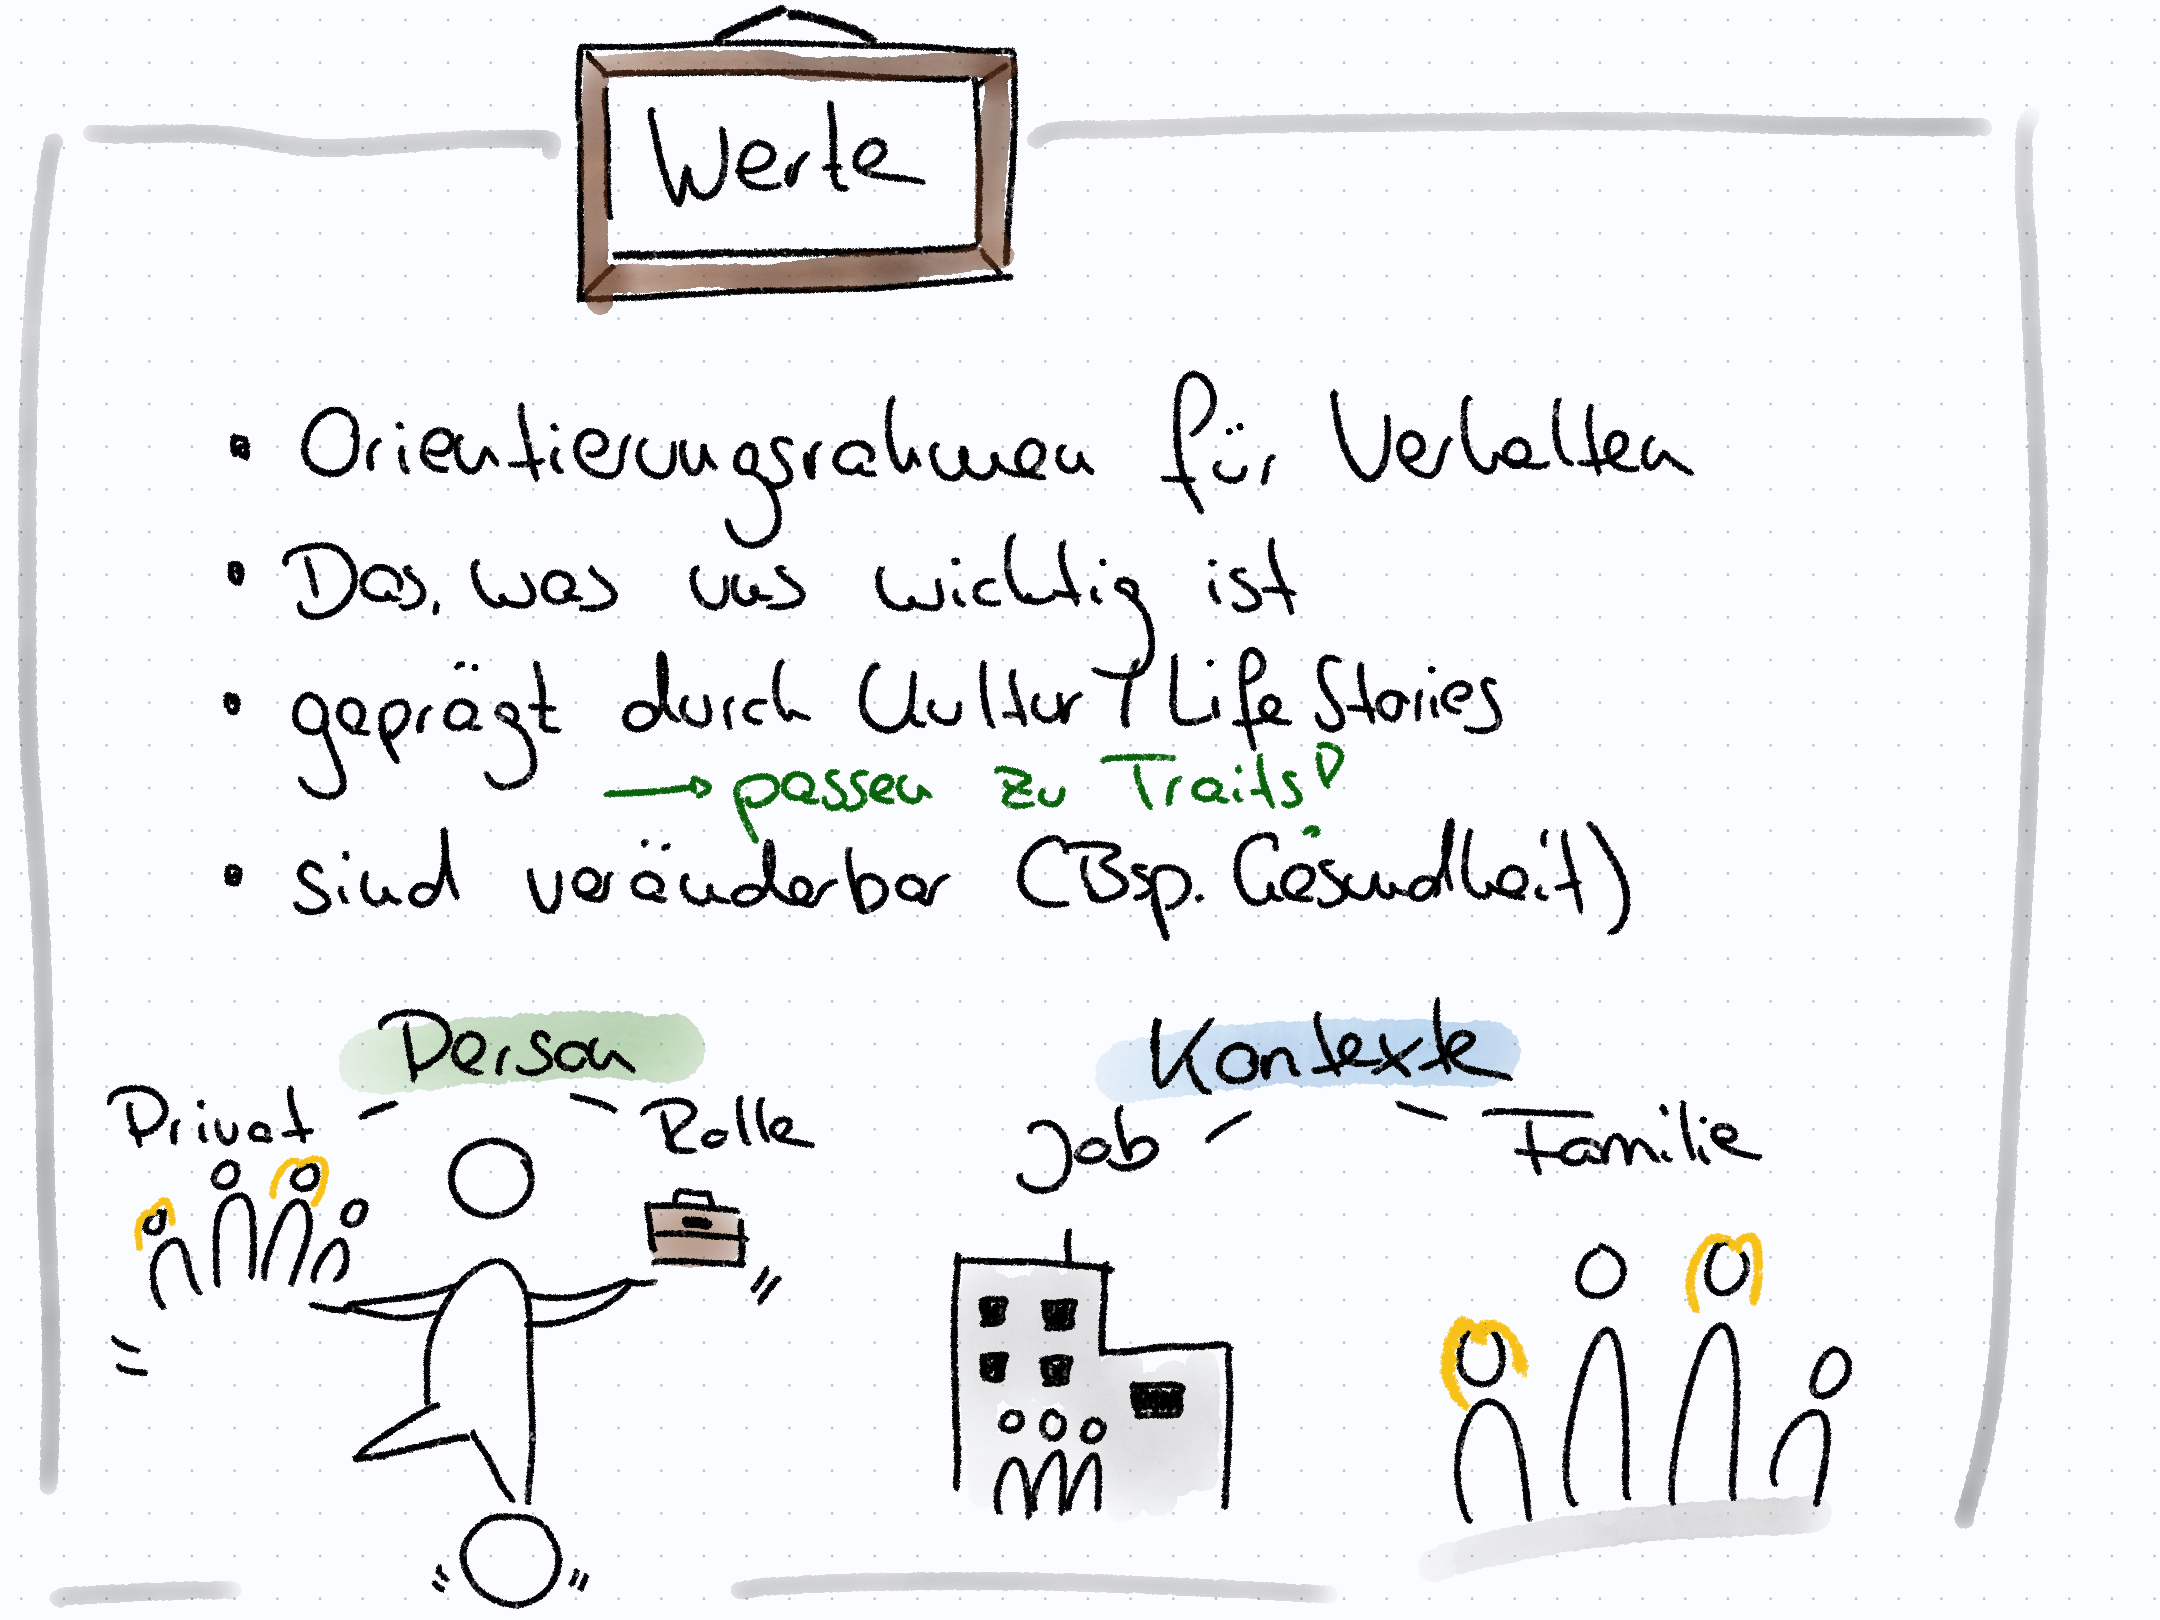 Werte
• Orientierungsrahmen für Verhalten
• Das, was uns wichtig ist
• geprägt durch Kultur / Life Stories
→ passen zu Traits!
• sind veränderbar (Bsp. Gesundheit)
Person
Privat
Rolle
Kontexte
Job
Familie